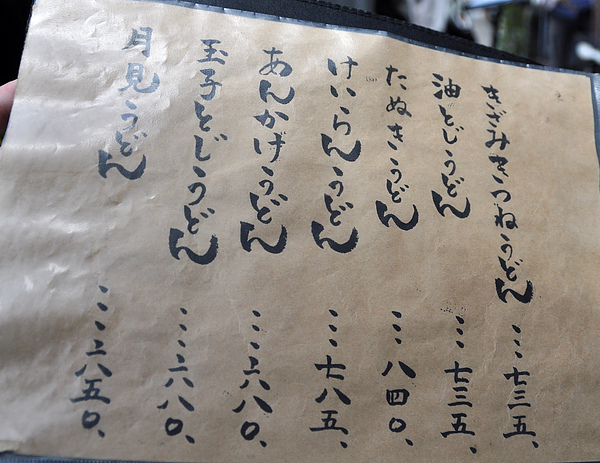 きざみきつねうどん …七三五、
油とじうどん …七三五、
たぬきうどん …八四〇、
けいらんうどん …七八五、
あんかけうどん …六八〇、
玉子とじうどん …六八〇、
月見うどん …六八五〇、